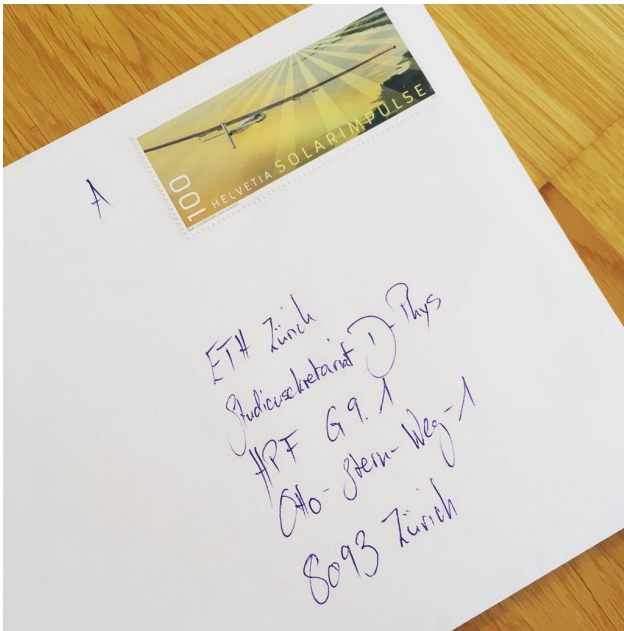 100 HELVETIA SOLARIMPULSE
A
ETH Zürich
Studiensekretariat D-Phys
HPF G 9.1
Otto-Stern-Weg-1
8093 Zürich